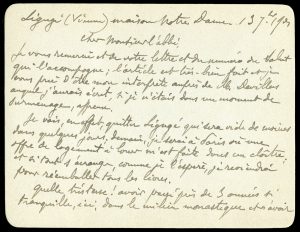 Ligugé (Vienne) maison Notre Dame. 13 7bre 1901
cher Monsieur l'abbé
Je vous remercie et de votre lettre et du numéro du
que l'accompagne; l'article est très bien fait et je
vous prie d'être mon interprète auprès de Mr
auquel j'aurais écrit, si je n'étais dans un moment de
surmenage, affreux.
Je vais en effet quitter Ligugé qui sera vide de moines
dans quelques jours; demain, je serai à Paris où une
offre de logement à louer m'est faite dans un cloître
et si tout s'arrange comme je l'espère, je reviendrai
pour réemballer tous les livres.
Quelle tristesse! avoir passé près de 3 années si
tranquille, ici, dans le milieu monastique et n'avoir